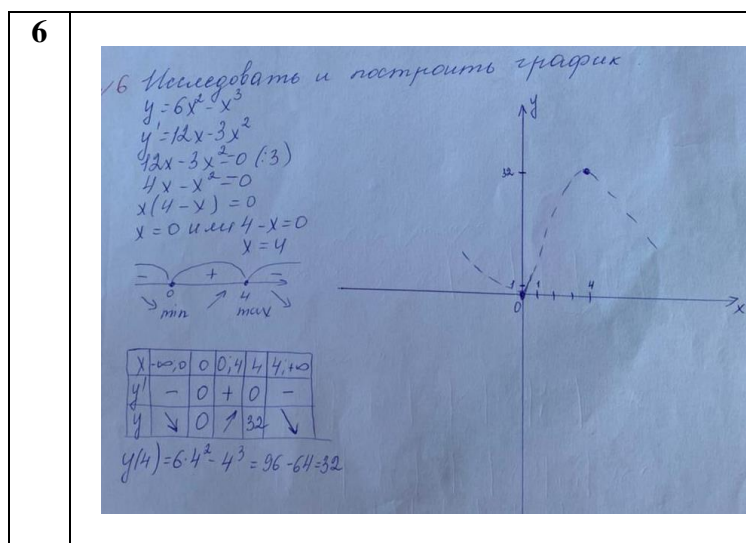 6
√6 Исследовать и построить график
y = 6x² - x³
y' = 12x - 3x²
12x - 3x² = 0 (:3)
4x - x² = 0
x(4 - x) = 0
x = 0 или 4 - x = 0
x = 4
- + -
0 4
min max
x -∞;0 0 0;4 4 4;+∞
y' - 0 + 0 -
y ↘ 0 ↗ 32 ↘
y(4) = 6·4² - 4³ = 96 - 64 = 32
y
32
1 1 4
0 x